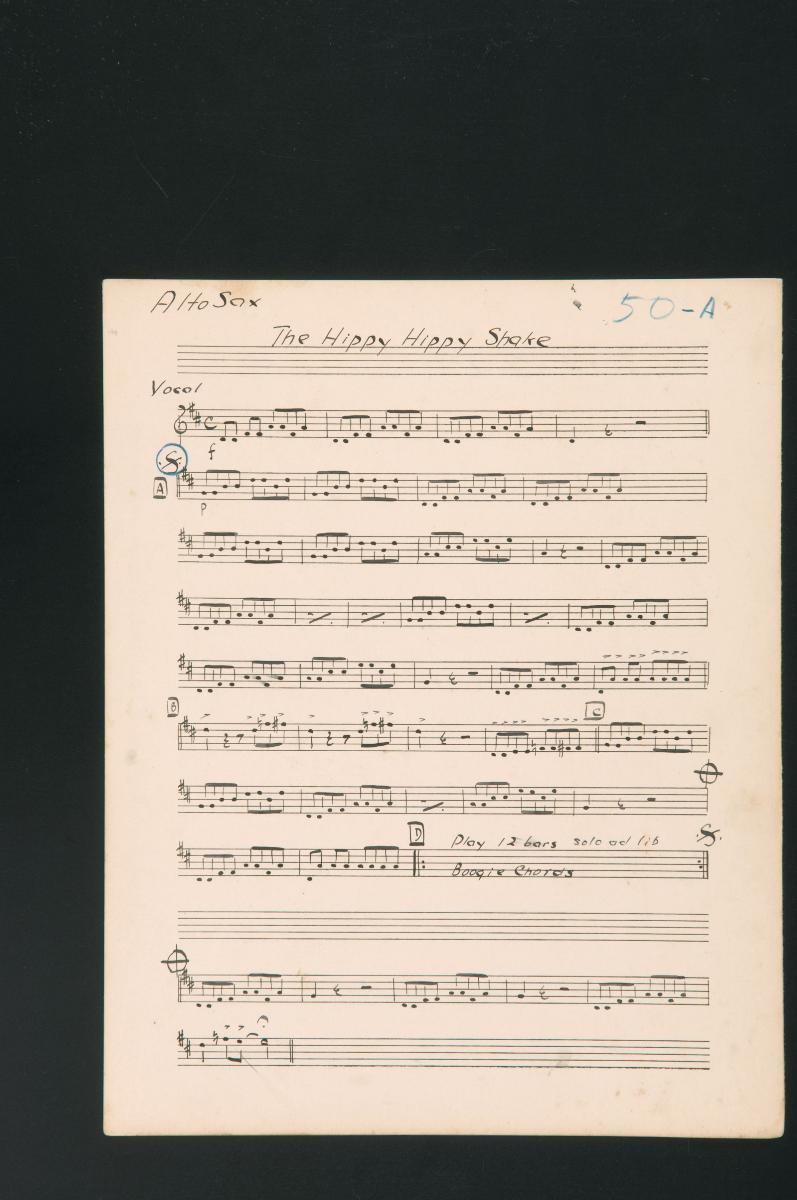 Alto Sax
50-A
The Hippy Hippy Shake
Vocal
f
A
p
B
C
D Play 12 bars solo ad lib
Boogie Chords